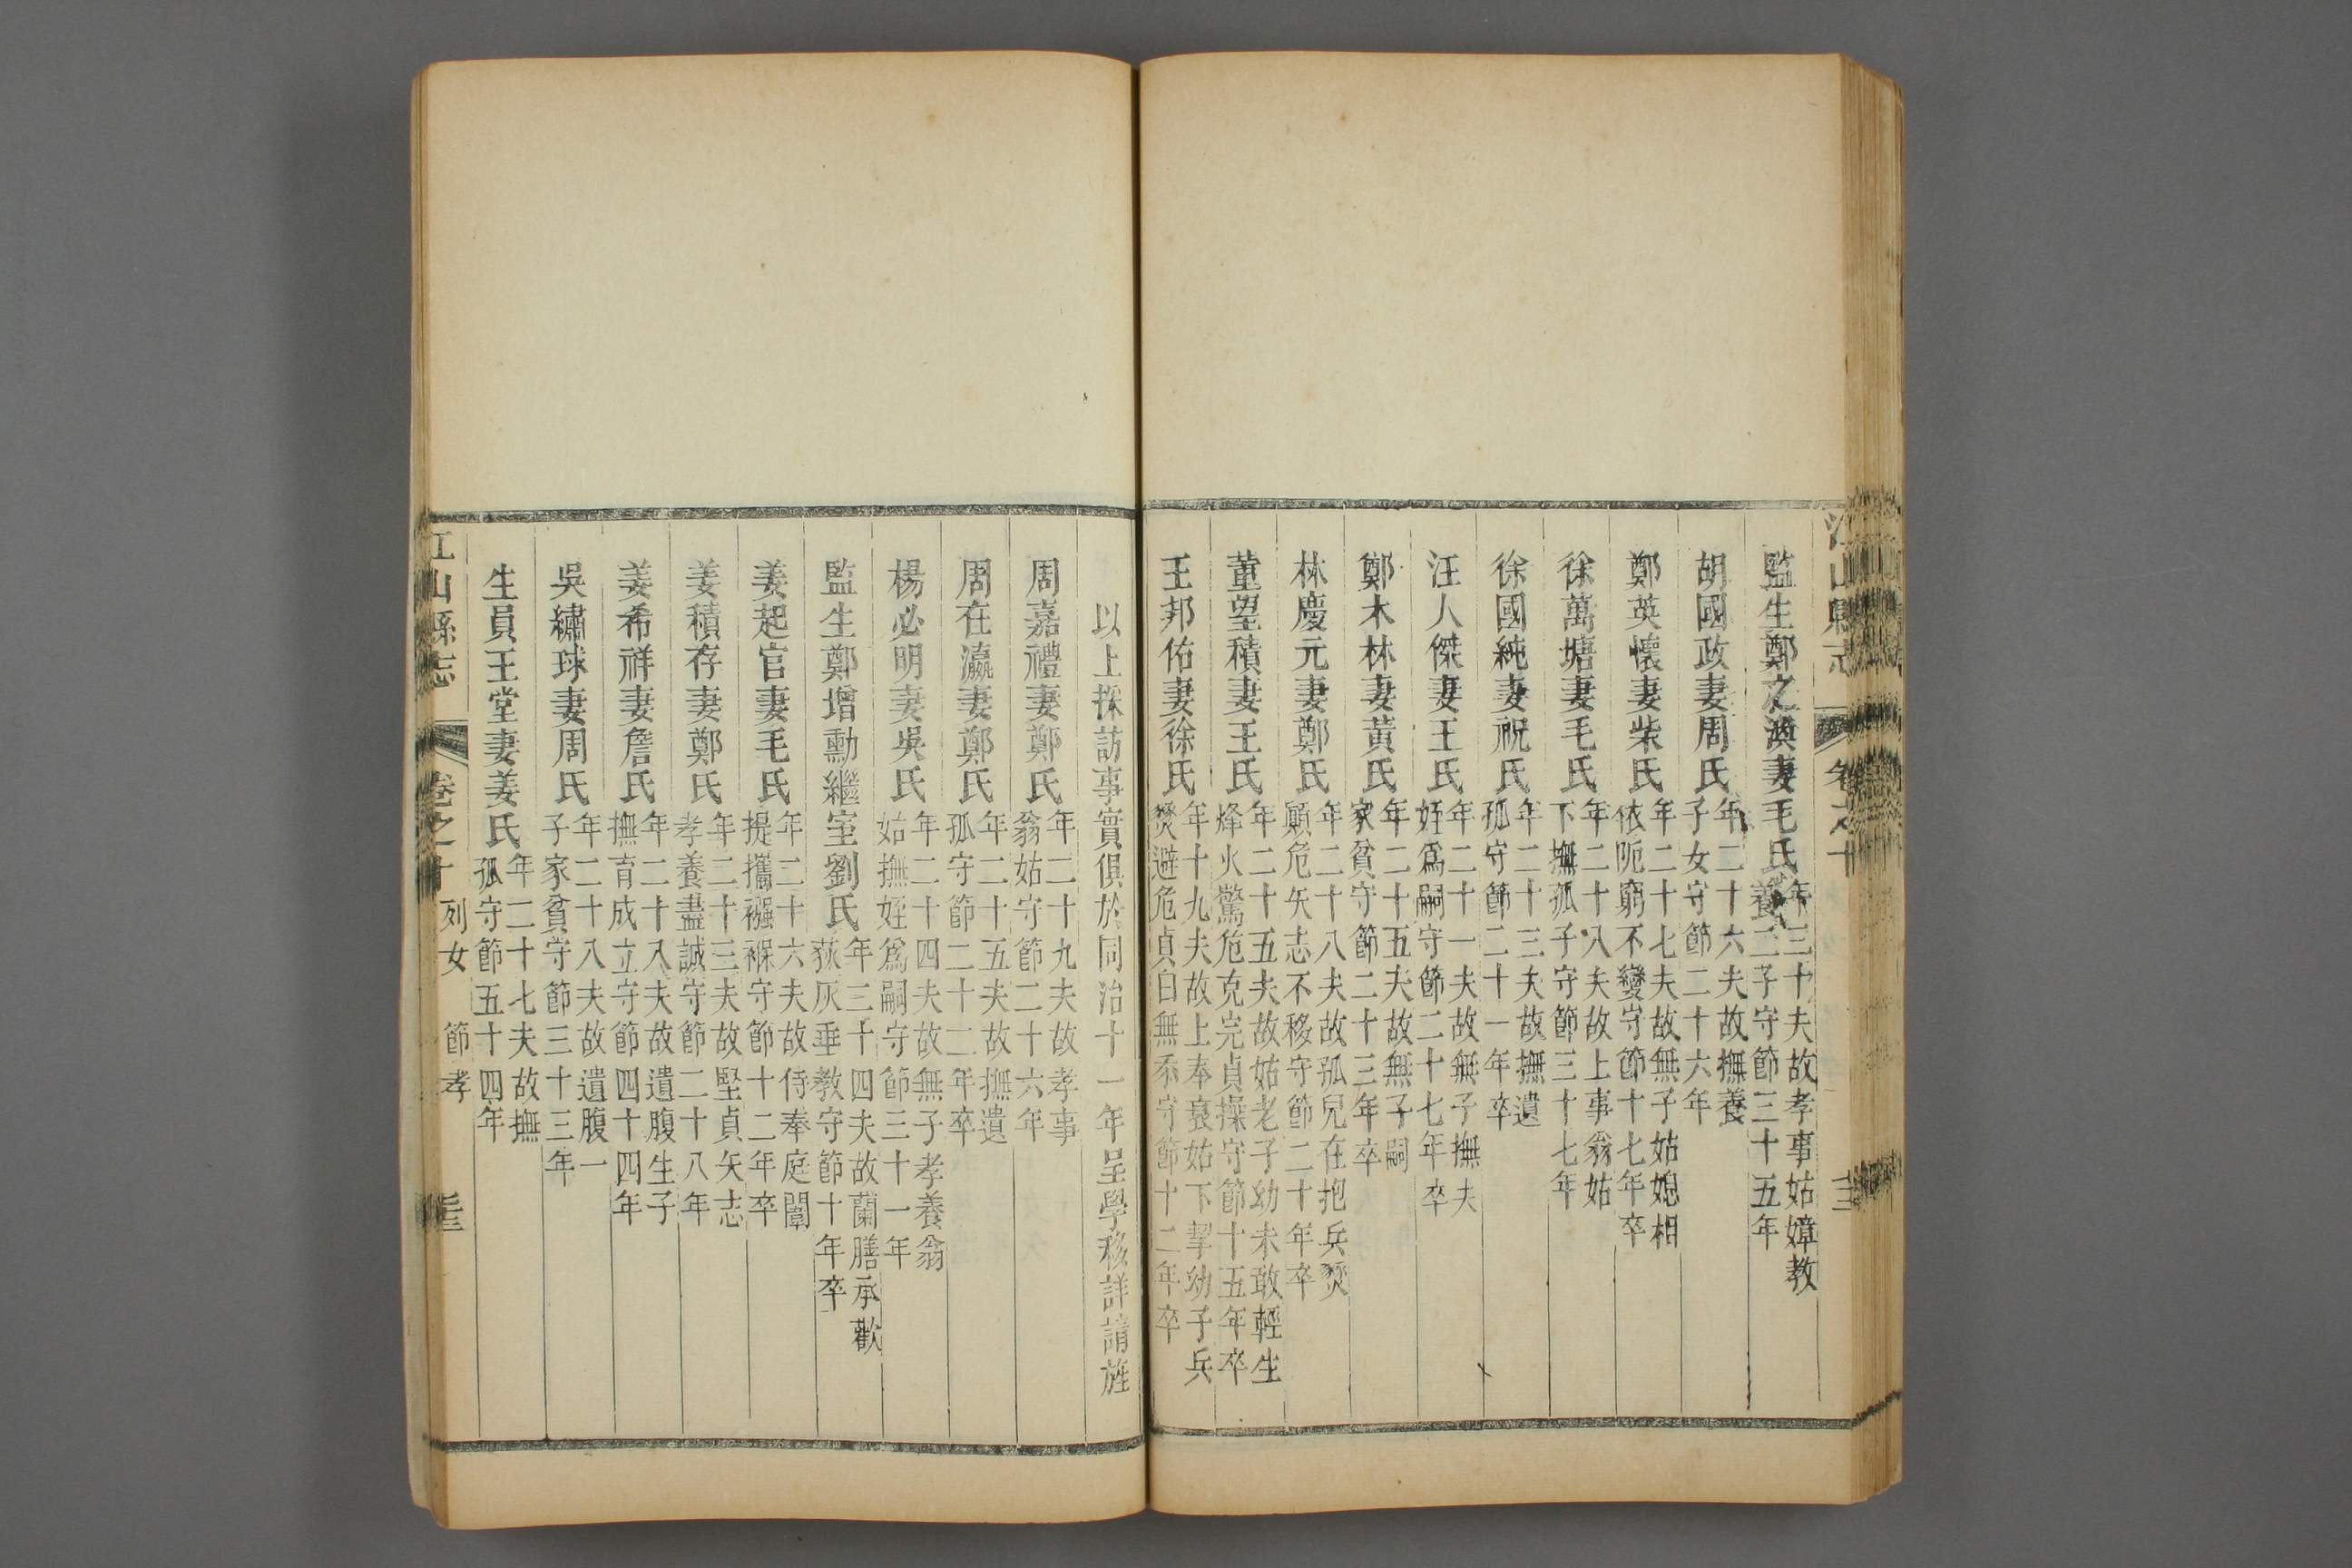 江山縣志 卷之十
監生鄭之漪妻毛氏年三十夫故孝事姑嫜教養二子守節三十五年
胡國政妻周氏年二十六夫故撫養子女守節二十六年
鄭英懷妻柴氏年二十七夫故無子姑媳相依阨窮不變守節十七年卒
徐萬塘妻毛氏年二十八夫故上事翁姑下撫孤子守節三十七年
徐國純妻祝氏年二十三夫故撫遺孤守節二十一年卒
汪人傑妻王氏年二十一夫故無子撫夫姪爲嗣守節二十七年卒
鄭木林妻黃氏年二十五夫故無子嗣家貧守節二十三年卒
林慶元妻鄭氏年二十八夫故孤兒在抱兵燹顚危矢志不移守節二十年卒
董望積妻王氏年二十五夫故姑老子幼未敢輕生烽火驚危克完貞操守節十五年卒
王邦佑妻徐氏年十九夫故上奉衰姑下挈幼子兵燹避危貞白無忝守節十二年卒
以上採訪事實俱於同治十一年呈學移詳請旌
周嘉禮妻鄭氏年二十九夫故孝事翁姑守節二十六年
周在瀛妻鄭氏年二十五夫故撫遺孤守節二十二年卒
楊必明妻吳氏年二十四夫故無子孝養翁姑撫姪爲嗣守節三十一年
監生鄭增勳繼室劉氏年三十四夫故蘭膳承歡荻灰垂教守節十年卒
姜起官妻毛氏年二十六夫故侍奉庭闈提攜襁褓守節十二年卒
姜積存妻鄭氏年二十三夫故堅貞矢志孝養盡誠守節二十八年
姜希祥妻詹氏年二十八夫故遺腹生子撫育成立守節四十四年
吳繡球妻周氏年二十八夫故遺腹一子家貧守節三十三年
生員王堂妻姜氏年二十七夫故撫孤守節五十四年
江山縣志 卷之十 列女 節孝